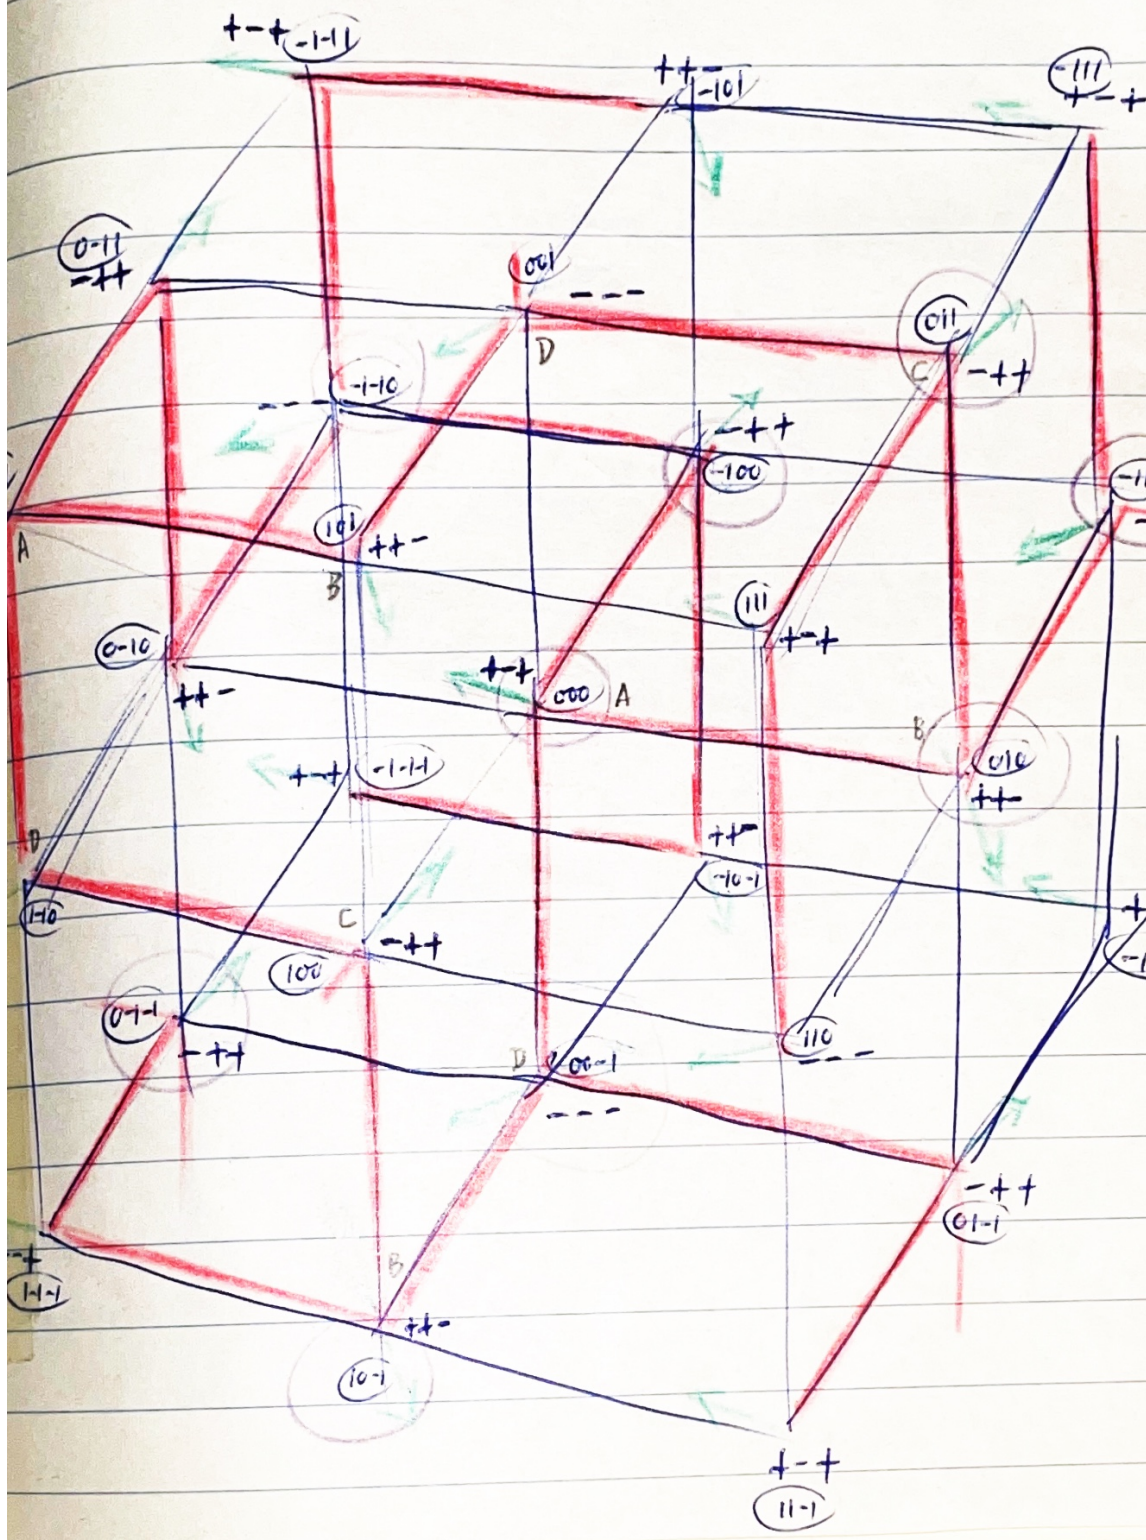 +-+ -1-11
++- -101
-111
+-+
0-11
-++
001
---
D
011
C -++
-1-10
---
-++
-100
A
101
++-
B
111
+-+
0-10
++-
+-+
000 A
B 010
++-
+-+ -1-1-1
D
1-10
++-
-10-1
C -++
100
0-1-1
-++
110
---
D 00-1
---
-++
01-1
1-1-1
B
++-
10-1
+-+
11-1